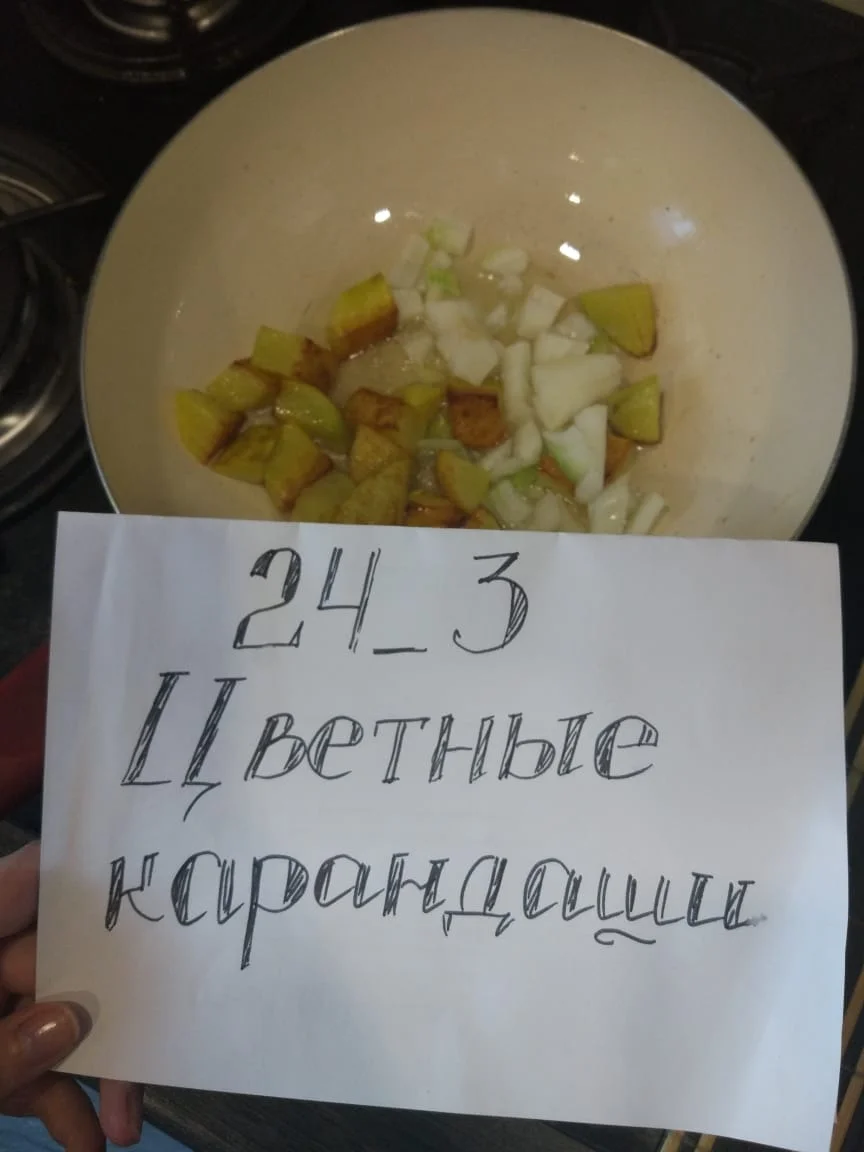 24_3
Цветные
карандаши